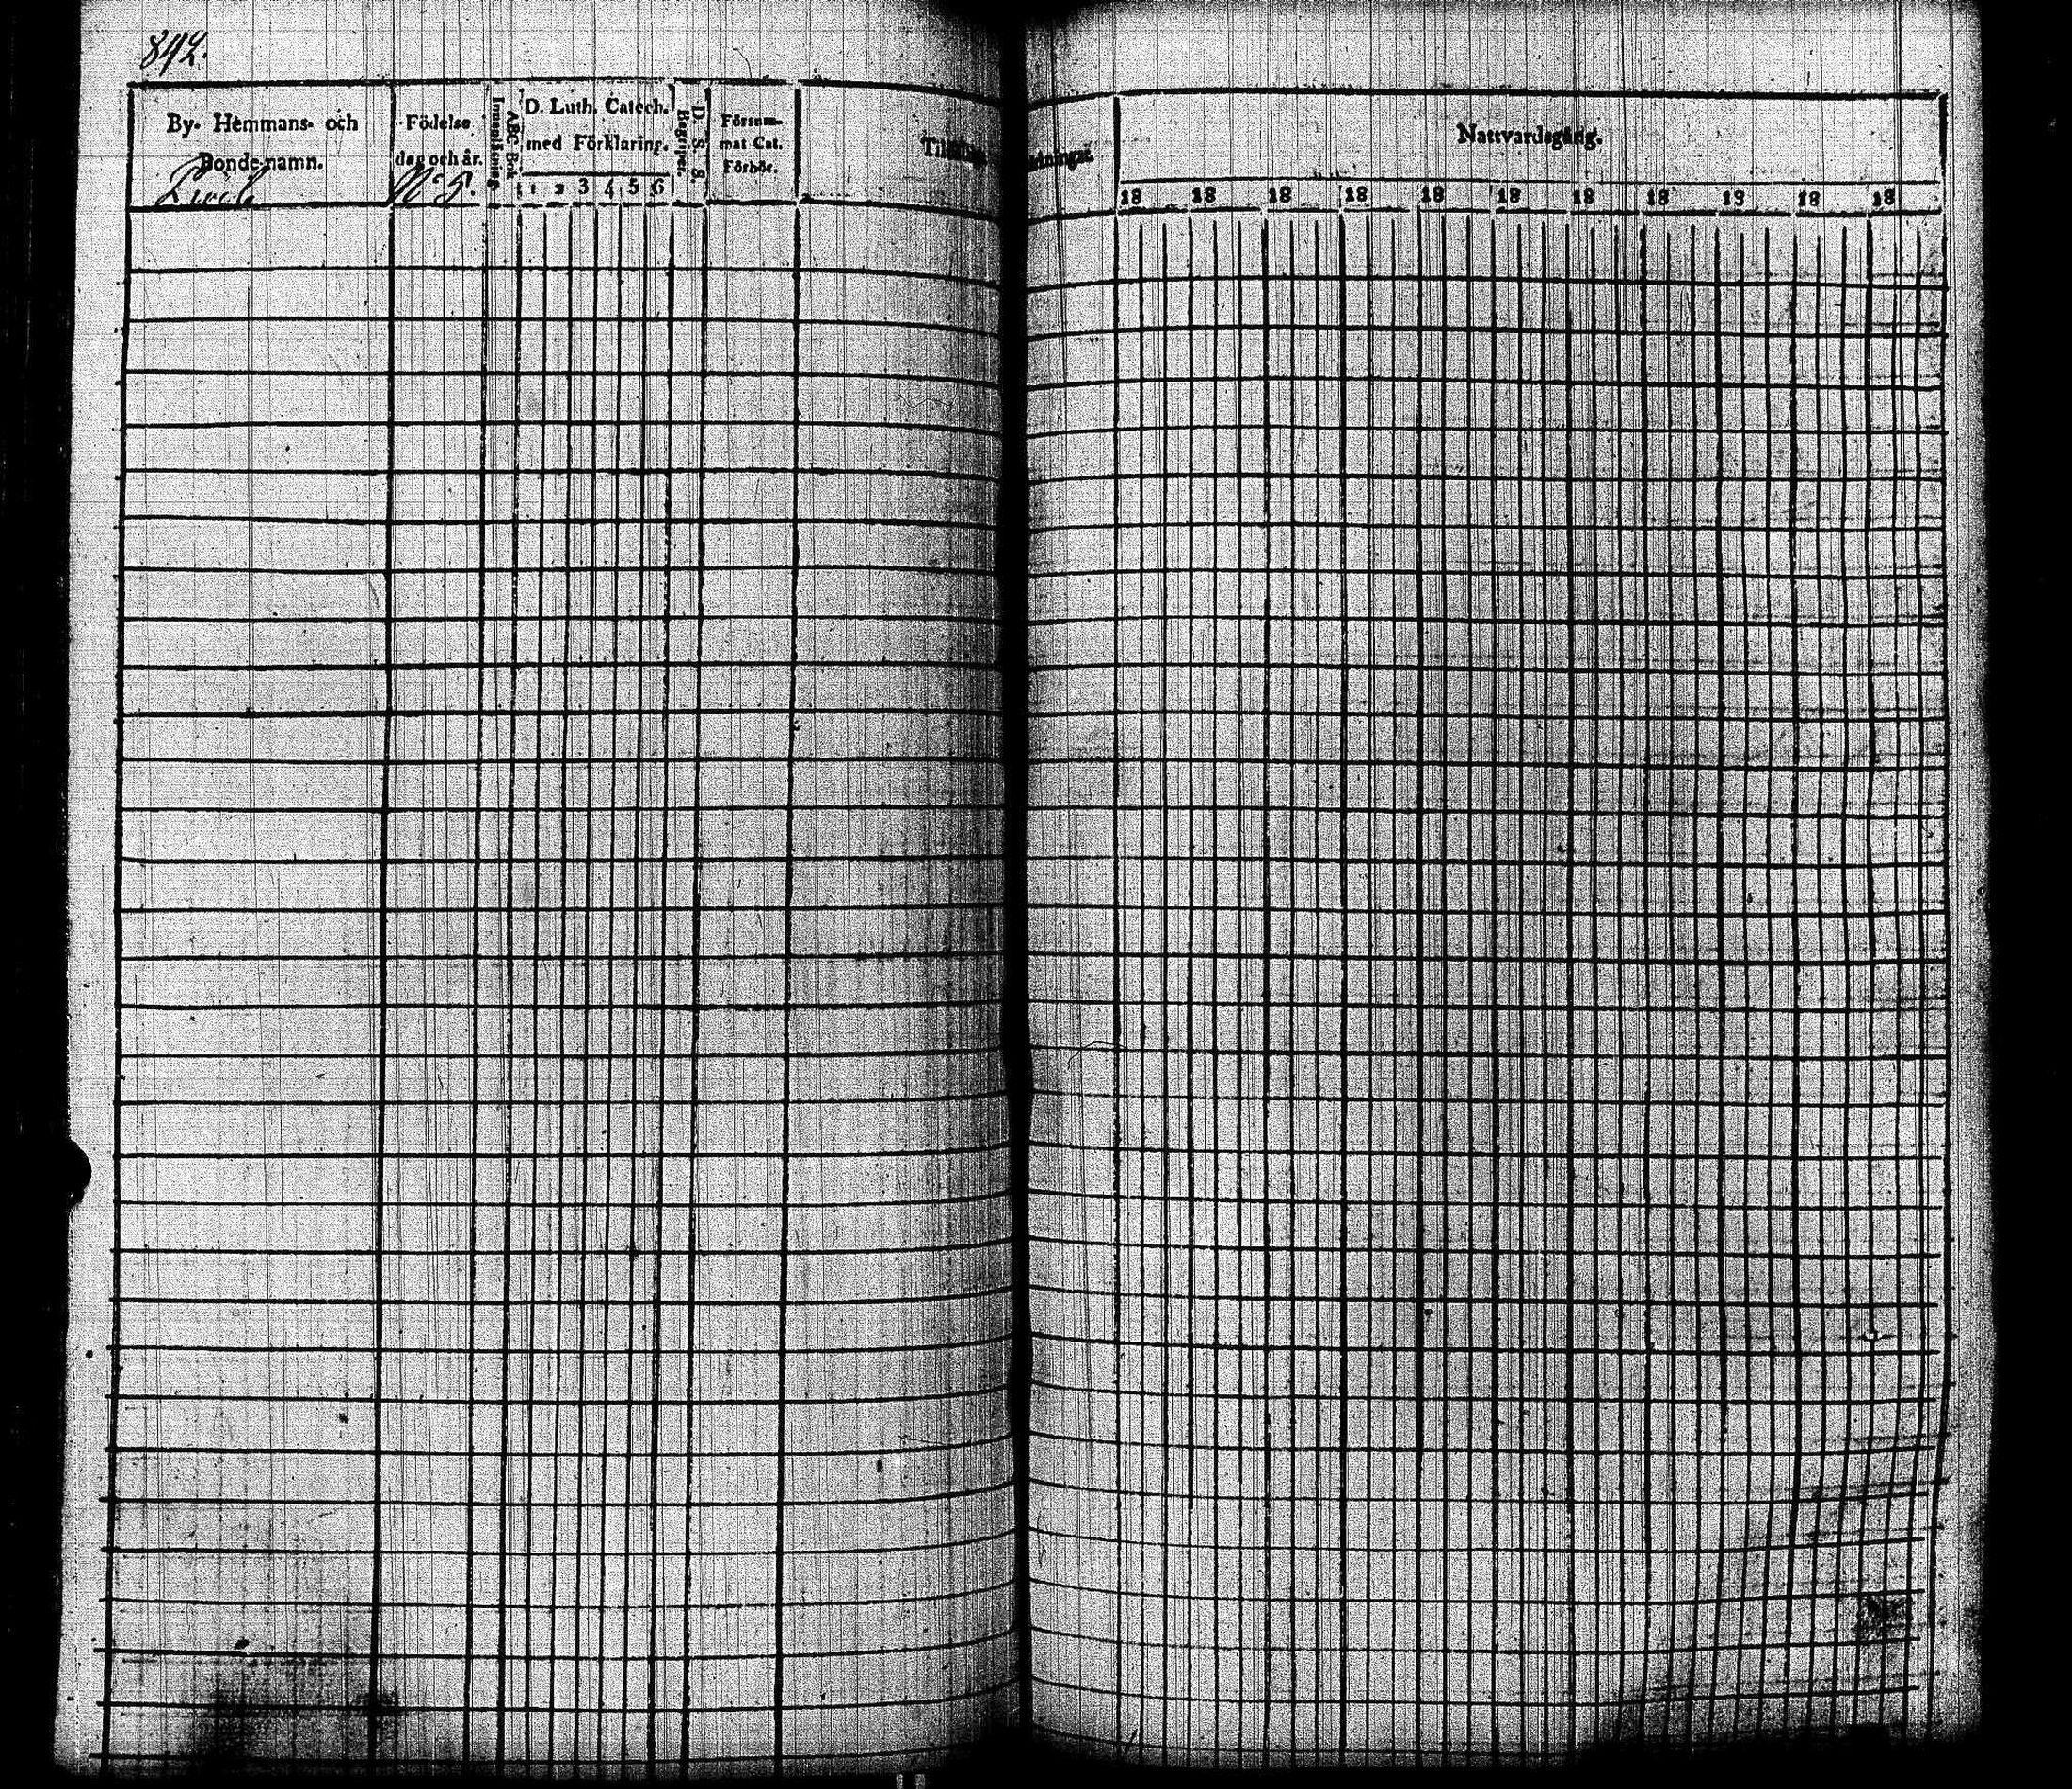 842.
By- Hemmans- och
Bonde-namn.
Födelse
dag och år.
N:o 8.
Innanläsning.
ABC Bok
D. Luth. Catech.
med Förklaring.
1 2 3 4 5 6
Begriper.
D. S. S.
Försum-
mat Cat.
Förhör.
Nattvardsgång.
18 18 18 18 18 18 18 18 18 18 18